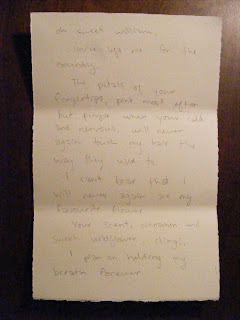 oh sweet william,
you've left me for the
boundary.
The petals of your
fingertips, pink most often
but purple when your cold
and nervous, will never
again touch my hair the
way they used to.
I cant bear that I
will never again see my
favourite flower.
Your scent, cinnamon and
sweet wildflower, clings.
I plan on holding my
breath forever.